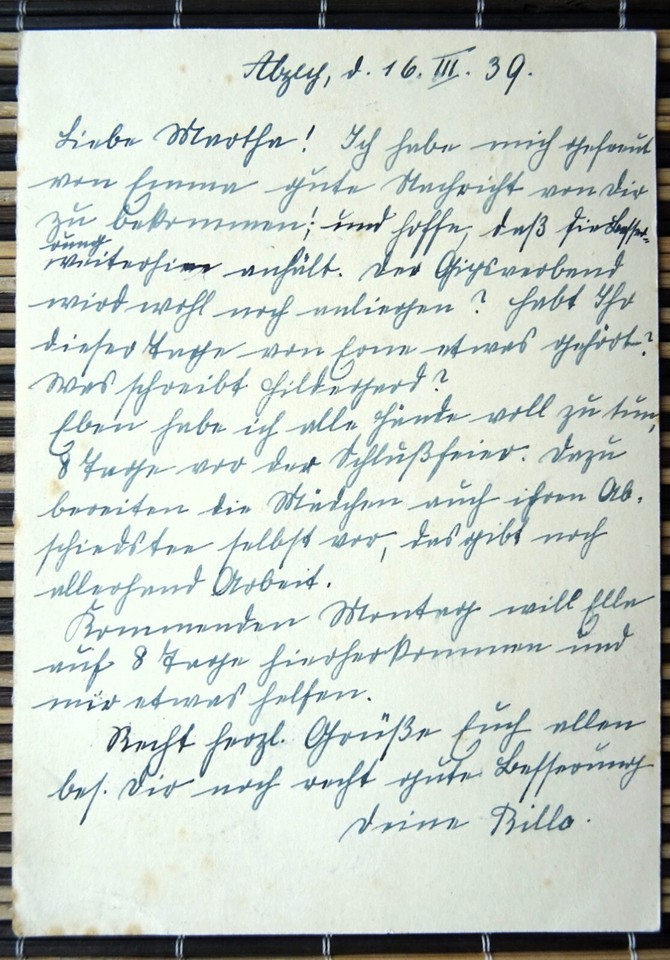 d. 16. III. 39.
Liebe Martha! Ich habe mich gefreut
von Emma gute Nachricht von Dir
zu bekommen; und hoffe, daß die Besse-
rung
weiterhin anhält. Der Gipsverband
wird wohl noch anliegen? Habt Ihr
dieser Tage von Erne etwas gehört?
Was schreibt Hildegard?
Eben habe ich alle Hände voll zu tun,
8 Tage vor der Schlußfeier. Dazu
bereiten die Mädchen auch ihren Ab-
schiedstee selbst vor, das gibt noch
allerhand Arbeit.
Kommenden Montag will Ella
auf 8 Tage hierherkommen und
mir etwas helfen.
Recht herzl. Grüße Euch allen
bes. Dir noch recht gute Besserung
Deine